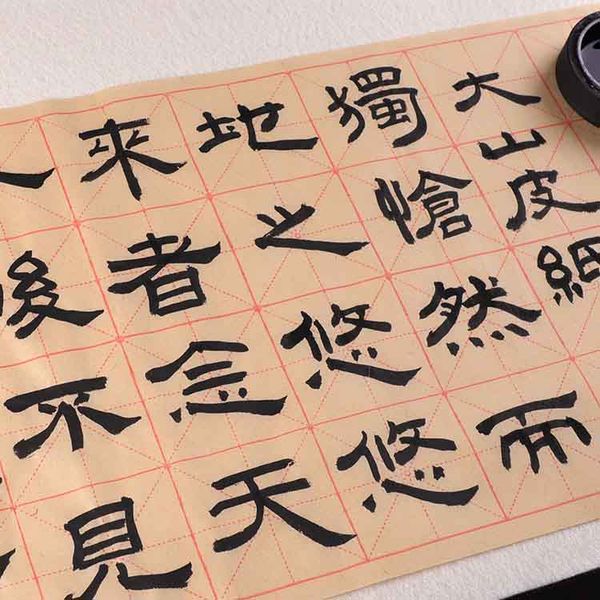 後不見
來者念天
地之悠悠
獨愴然而
大山皮